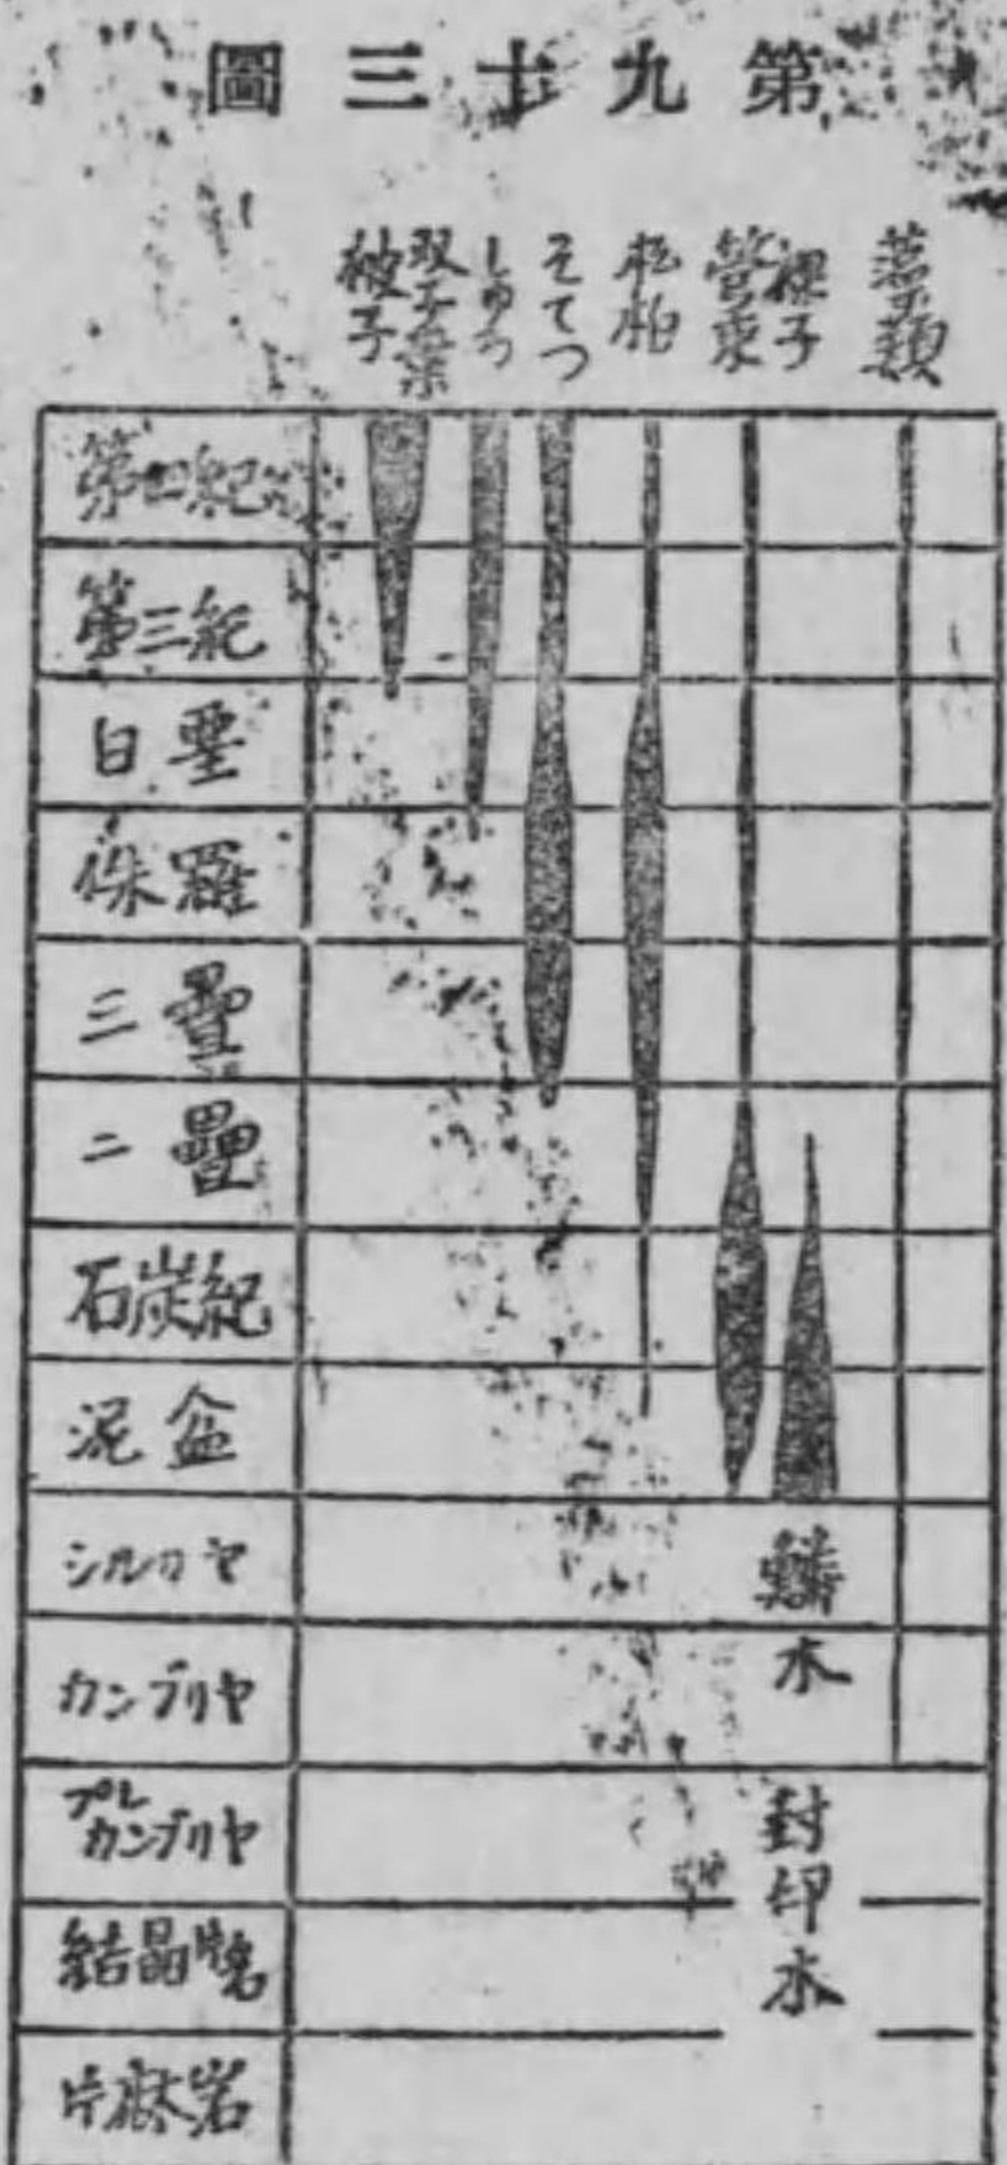 第九十三圖
藻類
裸子
管束
松柏
そてつ
しゅろ
双子葉
被子
第四紀
第三紀
白堊
侏羅
三疊
二疊
石炭紀
泥盆
シルリヤ
カンブリヤ
プレ
カンブリヤ
結晶片岩
片麻岩
鱗木
封印木